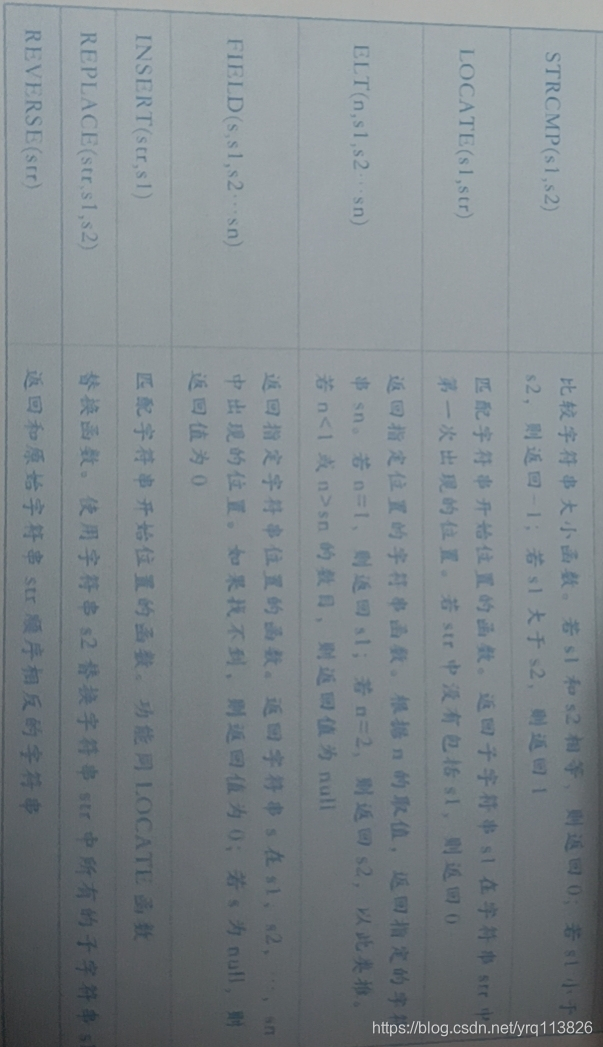 STRCMP(s1,s2)
比较字符串大小函数。若 s1 和 s2 相等，则返回 0；若 s1 小于
s2，则返回-1；若 s1 大于 s2，则返回 1
LOCATE(s1,str)
匹配字符串开始位置的函数。返回子字符串 s1 在字符串 str 中
第一次出现的位置。若 str 中没有包括 s1，则返回 0
ELT(n,s1,s2…sn)
返回指定位置的字符串函数。根据 n 的取值，返回指定的字符
串 sn。若 n=1，则返回 s1；若 n=2，则返回 s2，以此类推。
若 n<1 或 n>sn 的数目，则返回值为 null
FIELD(s,s1,s2…sn)
返回指定字符串位置的函数。返回字符串 s 在 s1，s2，…，sn
中出现的位置。如果找不到，则返回值为 0；若 s 为 null，则
返回值为 0
INSERT(str,s1)
匹配字符串开始位置的函数。功能同 LOCATE 函数
REPLACE(str,s1,s2)
替换函数。使用字符串 s2 替换字符串 str 中所有的子字符串 s1
REVERSE(str)
返回和原始字符串 str 顺序相反的字符串
https://blog.csdn.net/yrq113826